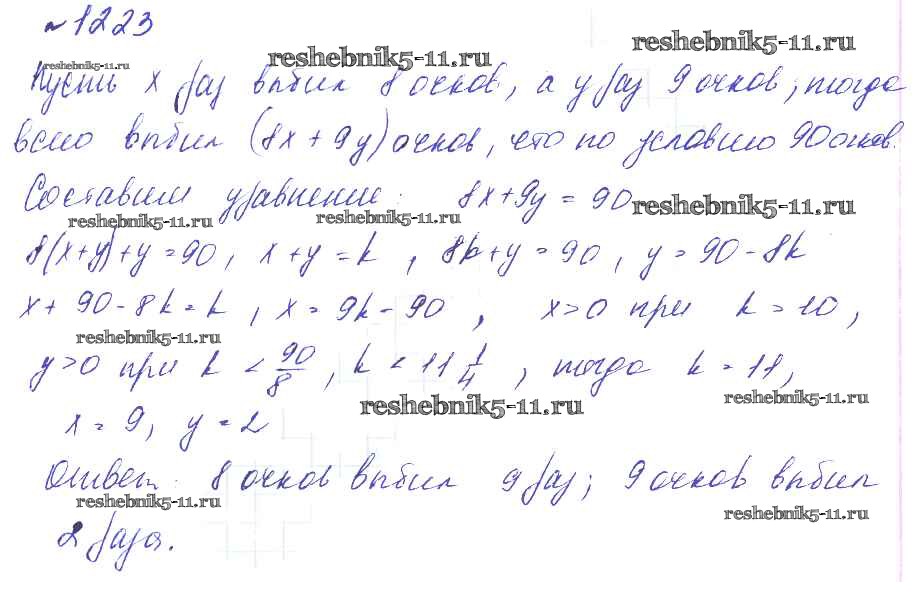 № 1223
reshebnik5-11.ru reshebnik5-11.ru
reshebnik5-11.ru
Пусть x раз выбил 8 очков, а y раз 9 очков, тогда
всего выбил (8x + 9y) очков, что по условию 90 очков.
Составим уравнение: 8x+9y = 90
reshebnik5-11.ru reshebnik5-11.ru reshebnik5-11.ru
8(x+y)+y=90, x+y=k, 8k+y=90, y=90-8k
x+90-8k=k, x=9k-90, x>0 при k>10,
reshebnik5-11.ru
y>0 при k < 90/8, k < 11 1/4, тогда k=11,
reshebnik5-11.ru reshebnik5-11.ru
x=9, y=2
Ответ: 8 очков выбил 9 раз; 9 очков выбил
reshebnik5-11.ru reshebnik5-11.ru
2 раза.